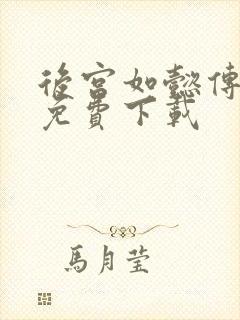 後宮如懿傳
免費下載
馬月瑩